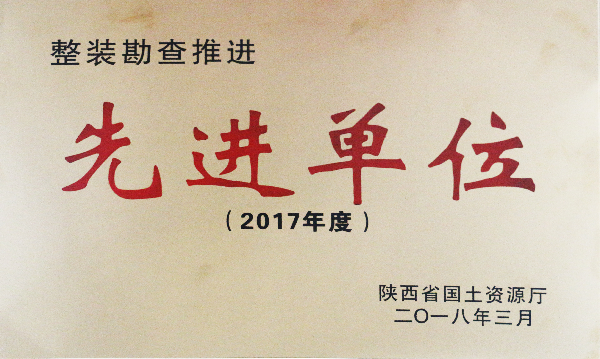 整装勘查推进
先进单位
（2017年度）
陕西省国土资源厅
二〇一八年三月